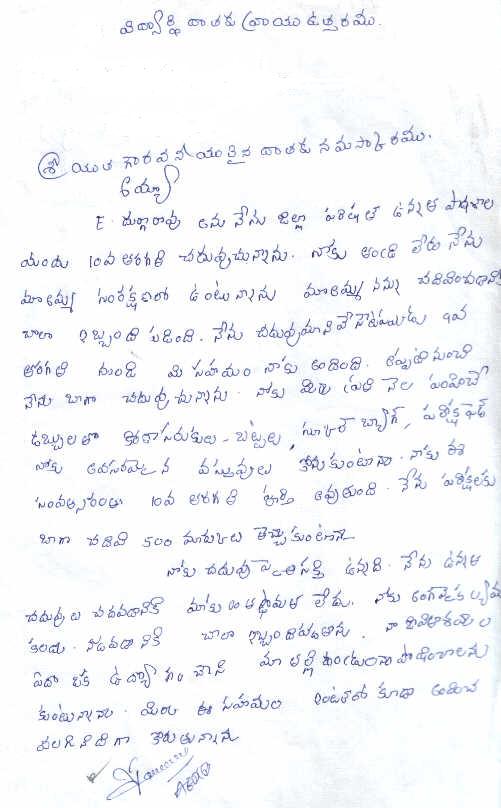 విద్యార్థి దాతకు వ్రాయు ఉత్తరము.
శ్రీ యుత గౌరవనీయులైన దాతకు నమస్కారము.
అయ్యా
E. దుర్గారావు అను నేను జిల్లా పరిషత్ ఉన్నత పాఠశాల
యందు 10వ తరగతి చదువుచున్నాను. నాకు తండ్రి లేరు నేను
మా అమ్మ సంరక్షణలో ఉంటున్నాను మా అమ్మ నన్ను చదివించడానికి
చాలా ఇబ్బంది పడింది. నేను చదువు మానివేసేటపుడు
తరగతి నుండి మీ సహయం నాకు అందింది. అప్పటి నుంచి
నేను బాగా చదువుచున్నాను. నాకు మీరు ప్రతి నెల పంపించే
డబ్బులతో కిరాసరుకులు - బట్టలు, స్కూల్ బ్యాగ్, పరీక్ష ఫ్యాడ్
నాకు అవసరమైన వస్తువులు కొనుకుంటాను. నాకు ఈ
సంవత్సరంతో 10వ తరగతి పూర్తి అవుతుంది. నేను పరీక్షలకు
బాగా చదివి 500 మార్కులు తెచ్చుకుంటాను
నాకు చదువు పై ఆసక్తి ఉన్నది. నేను ఉన్నత
చదువులు చదవడానికి మాకు ఆర్థమత లేదు. నాకు అంగవైకల్యము
కలదు. నడవడానికి చాలా ఇబ్బంది పడతాను. నా
ఏదో ఒక ఉద్యోగం చేసి మా తల్లి పోషించాలను
కుంటున్నాను. మీరు ఈ సహయం ఇంటర్లో కూడా అందించ
వలసినదిగా కోరుతున్నాను